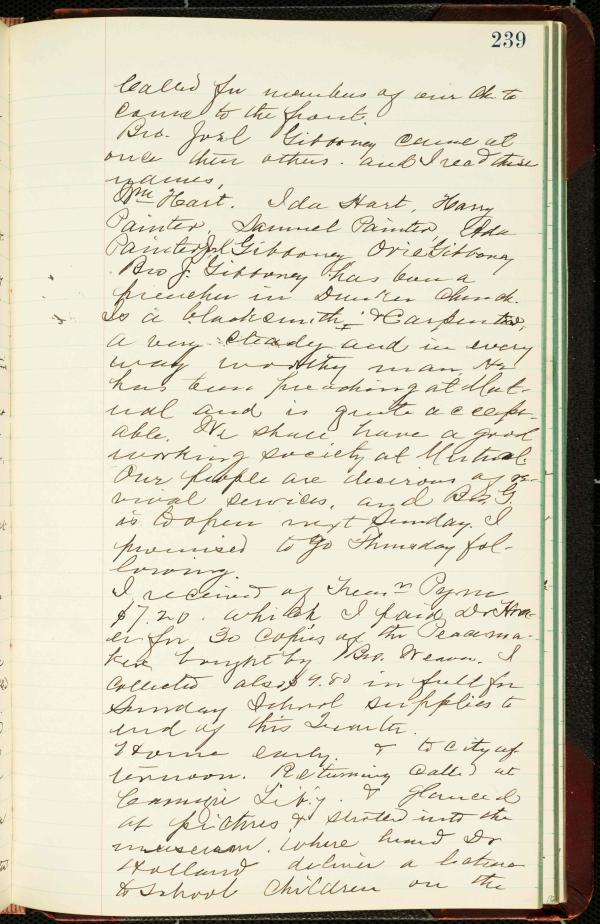 239
Called for members of our Ch. to
come to the front.
Bro. Joel Gibboney came at
once then others. and I read these
names,
Wm Hart. Ida Hart, Harry
Painter, Samuel Painter, Ada
Painter, Jl Gibboney Orie Gibboney
Bro J. Gibboney has been a
preacher in Dunker Church.
Is a blacksmith, & Carpenter,
a very steady and in every
way worthy man, He
has been preaching at Mut-
ual and is quite accept-
able. We shall have a good
working society at Mutual.
Our people are desirous of re-
vival services, and Bro. G.
is to open next Sunday. I
promised to go Thursday fol-
lowing.
I received of Treasr Pyrm
$7.20. which I paid, Dr Hoo-
er for 30 copies of the Peacema-
ker bought by Bro. Weaver. I
collected also $9.80 in full for
Sunday School supplies to
end of this Quarter.
Home early, & to city af-
ternoon. Returning called at
Carnegie Lib'y. & glanced
at pictures, & strolled into the
museum. Where heard Dr
Holland deliver a lecture
to School Children on the